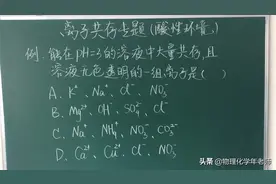 离子共存专题(酸性环境)
例. 能在pH=3的溶液中大量共存,且
溶液无色透明的一组离子是( )
A. K⁺、Na⁺、Cl⁻、NO₃⁻
B. Mg²⁺、OH⁻、SO₄²⁻、Cl⁻
C. Na⁺、NH₄⁺、NO₃⁻、CO₃²⁻
D. Ca²⁺、Cu²⁺、Cl⁻、NO₃⁻
头条 @物理化学年老师